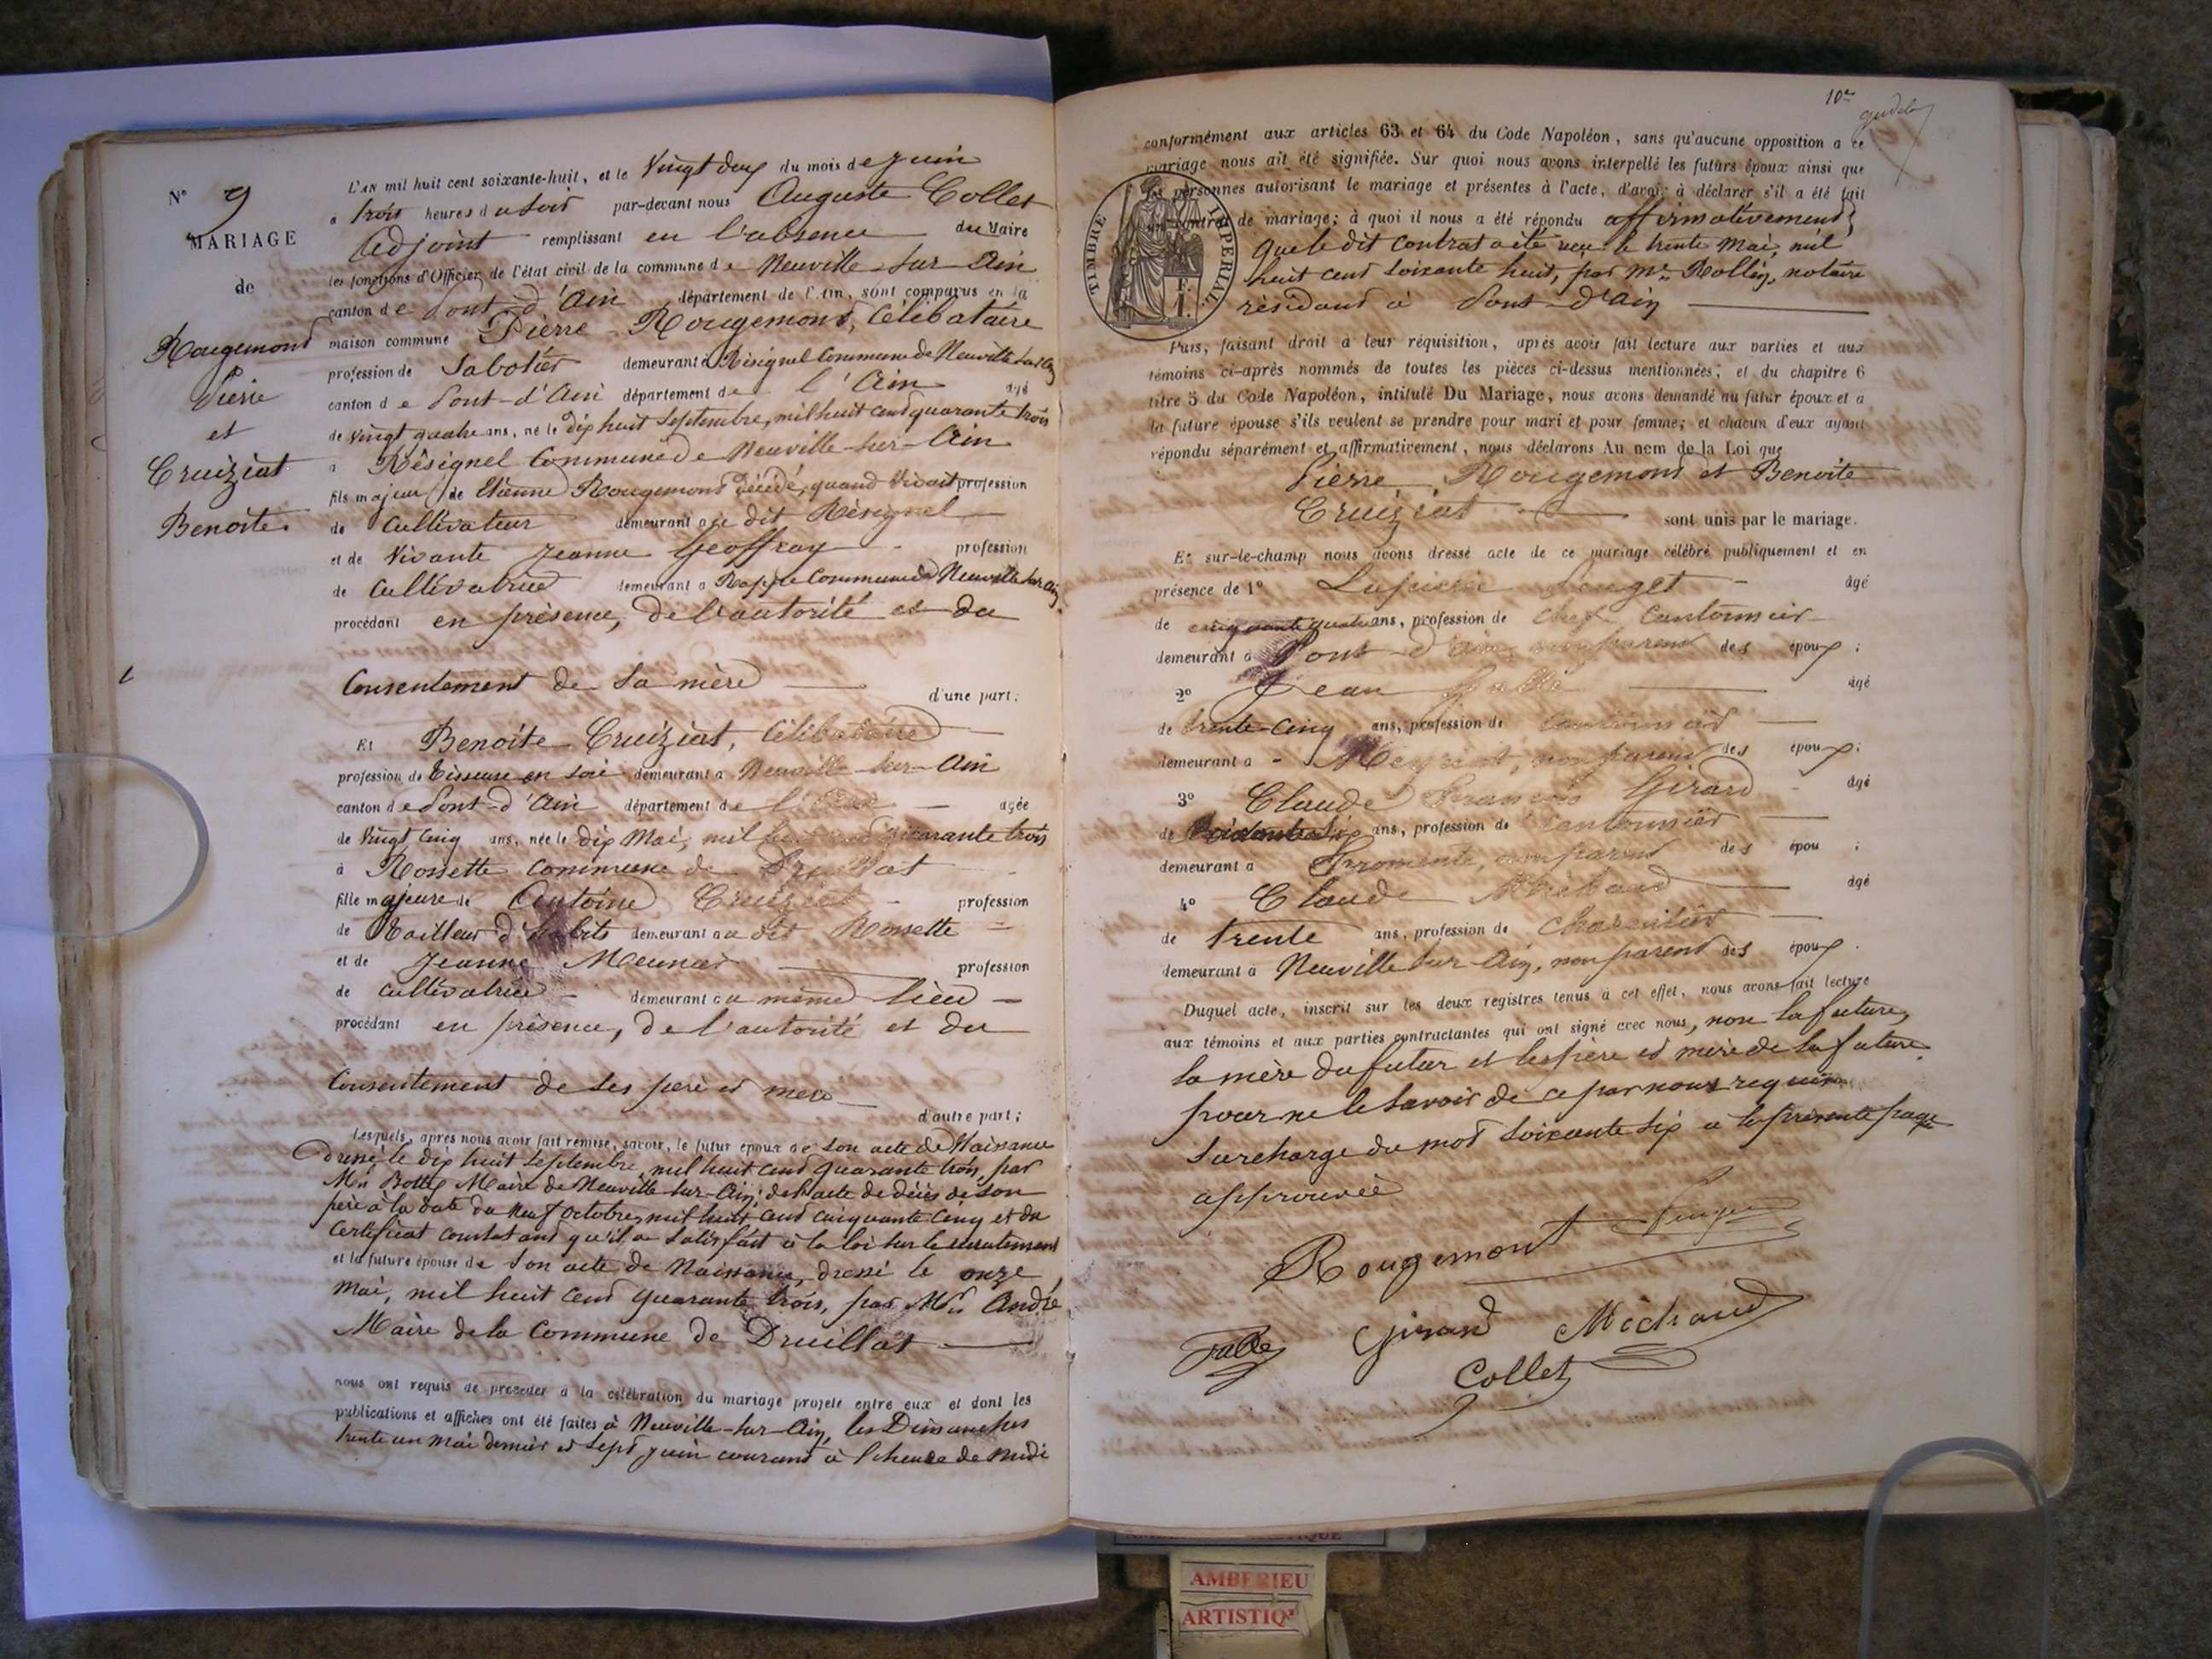 N° 9
MARIAGE
de
Rougemond
Pierre
et
Cruiziat
Benoite
L'AN mil huit cent soixante-huit, et le Vingt deux du mois de Juin
a trois heures du soir par-devant nous Auguste Collet
Adjoint remplissant en l'absence du Maire
les fonctions d'Officier de l'état civil de la commune de Neuville-sur-Ain
canton de Pont-d'Ain département de l'Ain, sont comparus en la
maison commune Pierre Rougemond, Célibataire
profession de Sabotier demeurant à Résignel Commune de Neuville sur Ain
canton de Pont-d'Ain département de l'Ain âgé
de vingt quatre ans, né le dix huit Septembre, mil huit cent quarante trois
à Résignel Commune de Neuville-sur-Ain
fils majeur de Etienne Rougemond Décédé, quand Vivait profession
de Cultivateur demeurant au dit Résignel
et de Vivante Jeanne Geoffray profession
de Cultivatrice demeurant a Commune de Neuville sur Ain
procédant en présence, de l'autorité et du
Consentement de sa mère d'une part;
Et Benoite Cruiziat, Célibataire
profession de Tisseuse en soie demeurant a Neuville-sur-Ain
canton de Pont-d'Ain département de l'Ain agée
de vingt cinq ans, née le dix Mai, mil huit cent quarante trois
à Rossette commune de Druillat
fille majeure de Antoine Cruiziat profession
de Tailleur d'habits demeurant au dit Rossette
et de Jeanne Meunier profession
de cultivatrice demeurant au même lieu
procédant en présence, de l'autorité et du
Consentement de ses père et mère
d'autre part;
Lesquels, après nous avoir fait remise, savoir, le futur époux de son acte de Naissance
dressé le dix huit Septembre, mil huit cent quarante trois, par
Mr Maire de Neuville-sur-Ain; de l'acte de décès de son
père à la date du neuf octobre, mil huit cent cinquante cinq et du
Certificat constatant qu'il a satisfait à la loi sur le recrutement
et la future épouse de son acte de Naissance, dressé le onze
Mai, mil huit cent quarante trois, par Mr André
Maire de la Commune de Druillat
nous ont requis de procéder à la célébration du mariage projeté entre eux et dont les
publications et affiches ont été faites à Neuville-sur-Ain, les Dimanches
trente un Mai dernier et sept Juin courant à l'heure de midi
10e
conformément aux articles 63 et 64 du Code Napoléon, sans qu'aucune opposition a ce
mariage nous ait été signifiée. Sur quoi nous avons interpellé les futurs époux ainsi que
personnes autorisant le mariage et présentes à l'acte, d'avoir à déclarer s'il a été fait
contrat de mariage; à quoi il nous a été répondu affirmativement;
que le dit contrat a été reçu le trente Mai, mil
huit cent soixante huit, par Me Rollin, notaire
résidant à Pont-d'Ain
TIMBRE IMPERIAL
Puis, faisant droit à leur réquisition, après avoir fait lecture aux parties et aux
témoins ci-après nommés de toutes les pièces ci-dessus mentionnées, et du chapitre 6
titre 5 du Code Napoléon, intitulé Du Mariage, nous avons demandé au futur époux et a
la future épouse s'ils veulent se prendre pour mari et pour femme; et chacun d'eux ayant
répondu séparément et affirmativement, nous déclarons Au nom de la Loi que
Pierre Rougemond et Benoite
Cruiziat sont unis par le mariage.
Et sur-le-champ nous avons dressé acte de ce mariage célébré publiquement et en
présence de 1° âgé
de cinquante quatre ans, profession de chef cantonnier
demeurant à Pont-d'Ain, non parent des époux;
2° Jean âgé
de trente-cinq ans, profession de cantonnier
demeurant a Meyriat, non parent des époux;
3° Claude François Girard âgé
de soixante six ans, profession de cantonnier
demeurant a non parent des épou;
4° Claude âgé
de trente ans, profession de
demeurant à Neuville sur Ain, non parent des époux.
Duquel acte, inscrit sur les deux registres tenus à cet effet, nous avons fait lecture
aux témoins et aux parties contractantes qui ont signé avec nous, non la future,
la mère du futur et les père et mère de la future
pour ne le savoir de ce par nous requis
surcharge du mot soixante six à la présente page
approuvée
Rougemont
Girard Michaud
Collet
AMBERIEU
ARTISTIQ